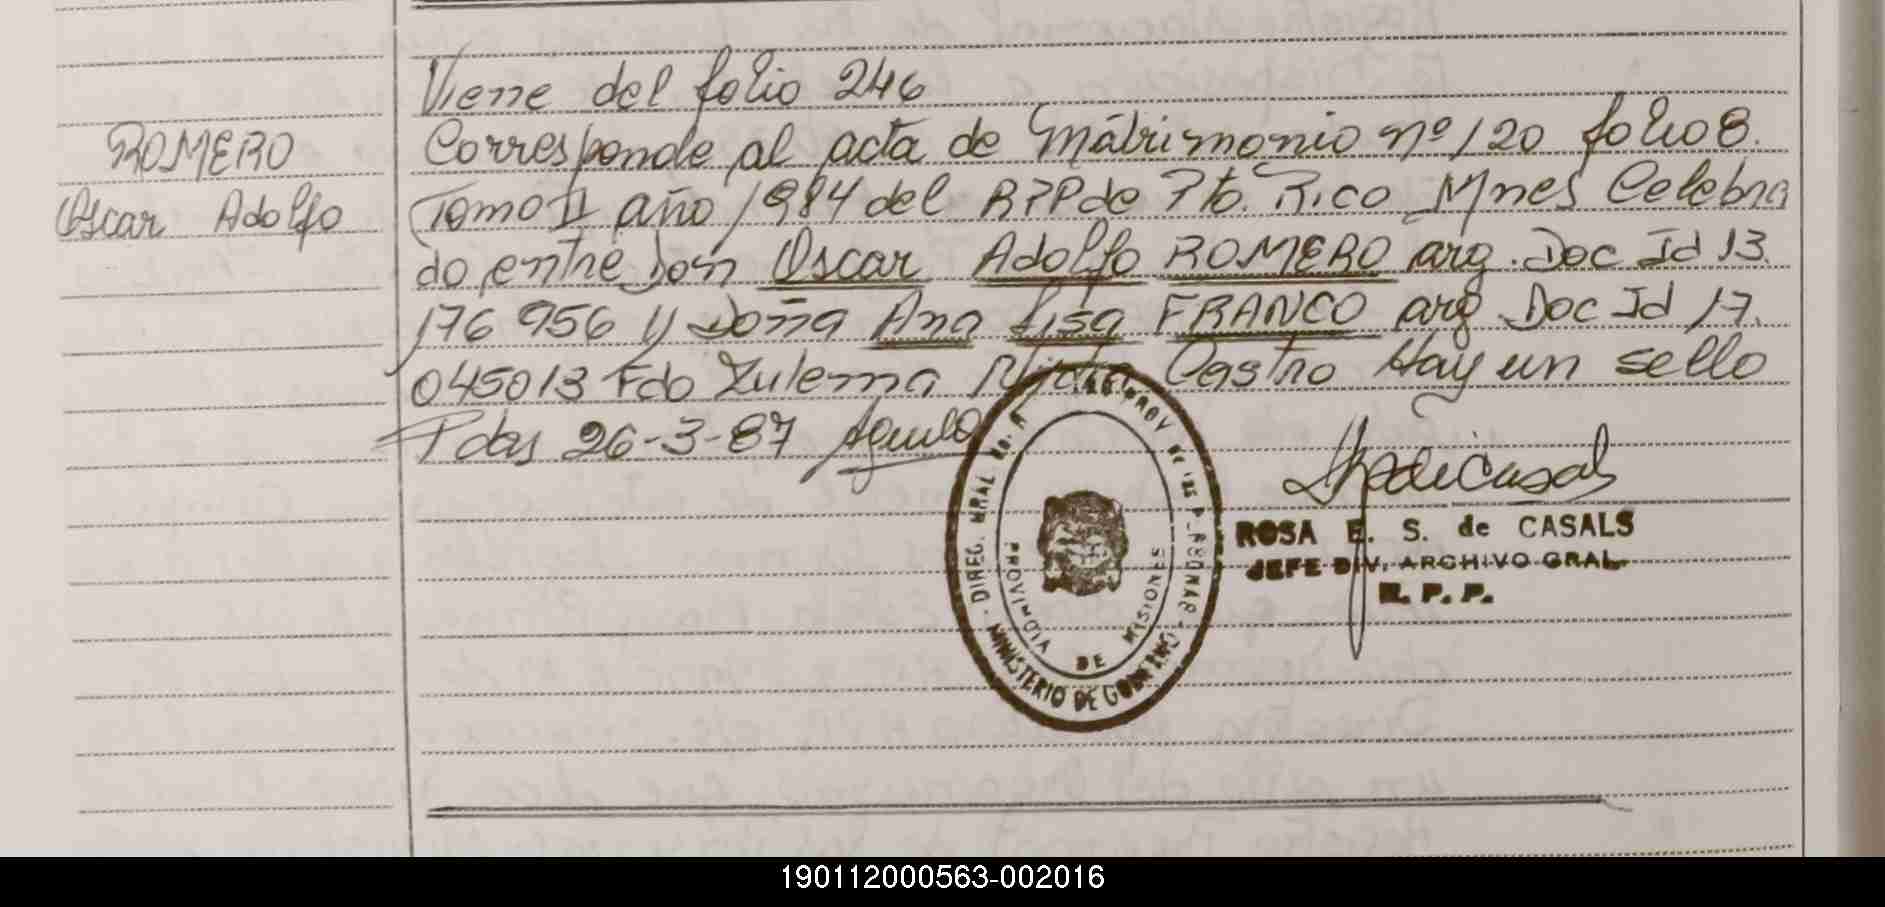 Viene del folio 246
ROMERO
Corresponde al acta de Matrimonio nº 120 folio 8.
Oscar Adolfo
Tomo II año 1984 del RPP de Pto. Rico Mnes Celebra
do entre Don Oscar Adolfo ROMERO arg. Doc Id 13.
176 956 y Doña Ana Lisa FRANCO arg. Doc Id 17.
045013 Fdo Zulema Castro Hay un sello
Pdas 26-3-87
ROSA E. S. de CASALS
JEFE DIV. ARCHIVO GRAL.
R. P. P.
DIREC. GRAL
MINISTERIO DE GOBIERNO
PROVINCIA DE MISIONES
190112000563-002016